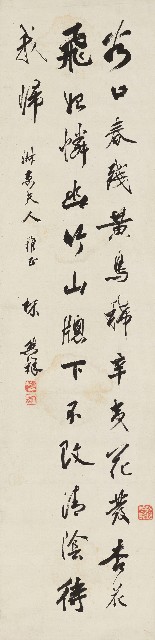 谷口春残黄鳥稀辛夷花發杏花
飛始憐幽竹山牕下不改清陰待
我歸
淑惠夫人雅正 林